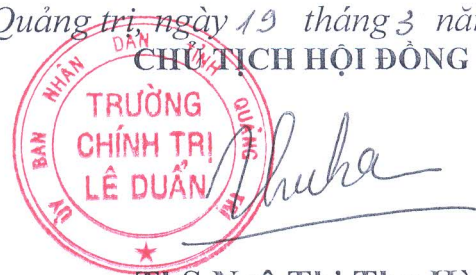 Quảng trị, ngày 19 tháng 3 năm
CHỦ TỊCH HỘI ĐỒNG
ỦY BAN NHÂN DÂN TỈNH QUẢNG TRỊ
TRƯỜNG
CHÍNH TRỊ
LÊ DUẨN